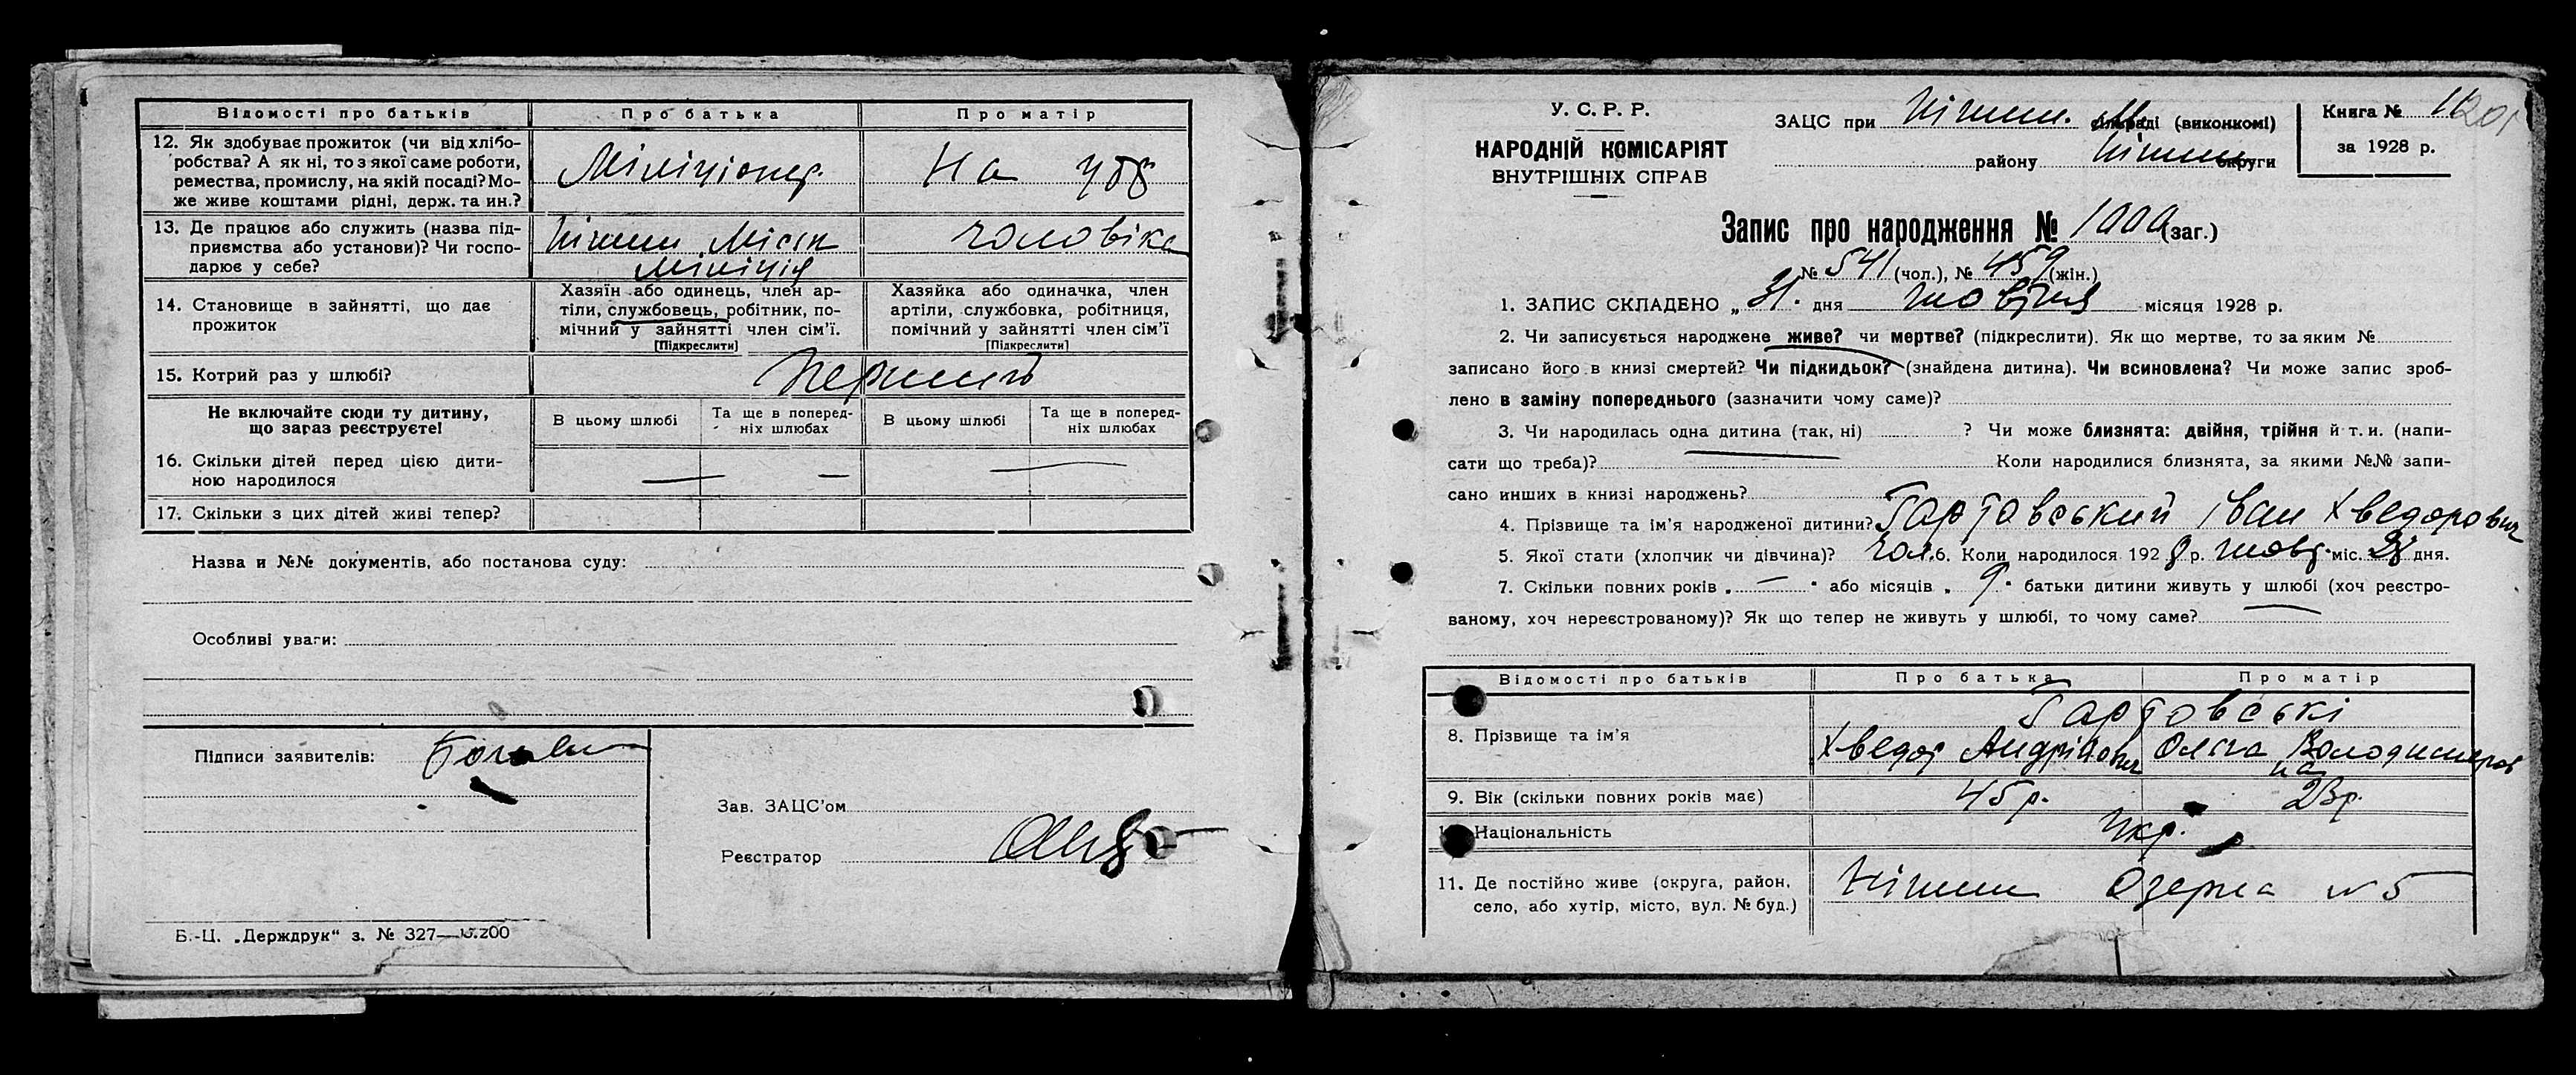 Відомості про батьків
Про батька
Про матір
12. Як здобуває прожиток (чи від хлібо-
робства? А як ні, то з якої саме роботи,
ремества, промислу, на якій посаді? Мо-
же живе коштами рідні, держ. та ин.?
Міліціонер.
На
13. Де працює або служить (назва під-
приємства або установи)? Чи госпо-
дарює у себе?
Ніжин Міськ
Міліція
чоловіка
14. Становище в зайнятті, що дає
прожиток
Хазяїн або одинець, член ар-
тіли, службовець, робітник, по-
мічний у зайнятті член сім'ї.
[Підкреслити]
Хазяйка або одиначка, член
артіли, службовка, робітниця,
помічний у зайнятті член сім'ї
[Підкреслити]
15. Котрий раз у шлюбі?
Не включайте сюди ту дитину,
що зараз реєструєте!
В цьому шлюбі
Та ще в поперед-
ніх шлюбах
В цьому шлюбі
Та ще в поперед-
ніх шлюбах
16. Скільки дітей перед цією дити-
ною народилося
— — —
17. Скільки з цих дітей живі тепер?
Назва и №№ документів, або постанова суду:
Особливі уваги:
Підписи заявителів:
Зав. ЗАЦС'ом
Реєстратор
Б.-Ц. „Держдрук“ з. № 327—15.200
У. С. Р. Р.
НАРОДНІЙ КОМІСАРІЯТ
ВНУТРІШНІХ СПРАВ
ЗАЦС при Ніжин. М. сільраді (виконкомі)
району Ніжин округи
Книга № 11
за 1928 р.
Запис про народження № 1000 (заг.)
№ 541 (чол.), № 459 (жін.)
1. ЗАПИС СКЛАДЕНО „ 31. дня жовтня місяця 1928 р.
2. Чи записується народжене живе? чи мертве? (підкреслити). Як що мертве, то за яким №
записано його в книзі смертей? Чи підкидьок? (знайдена дитина). Чи всиновлена? Чи може запис зроб-
лено в заміну попереднього (зазначити чому саме)?
3. Чи народилась одна дитина (так, ні) ? Чи може близнята: двійня, трійня й т. и. (напи-
сати що треба)? Коли народилися близнята, за якими №№ запи-
сано инших в книзі народжень?
4. Прізвище та ім'я народженої дитини? Гартовський Іван Хведорович
5. Якої стати (хлопчик чи дівчина)? чол. 6. Коли народилося 1928 р. жовт. міс. дня.
7. Скільки повних років „ — " або місяців „ 9 " батьки дитини живуть у шлюбі (хоч реєстро-
ваному, хоч нереєстрованому)? Як що тепер не живуть у шлюбі, то чому саме?
Відомості про батьків
Про батька
Про матір
8. Прізвище та ім'я
Гартовські
Хведор Андрійович
Ольга Володимиров
на
9. Вік (скільки повних років має)
45 р.
23 р.
Національність
Укр.
11. Де постійно живе (округа, район,
село, або хутір, місто, вул. № буд.)
Ніжин Озерна № 5